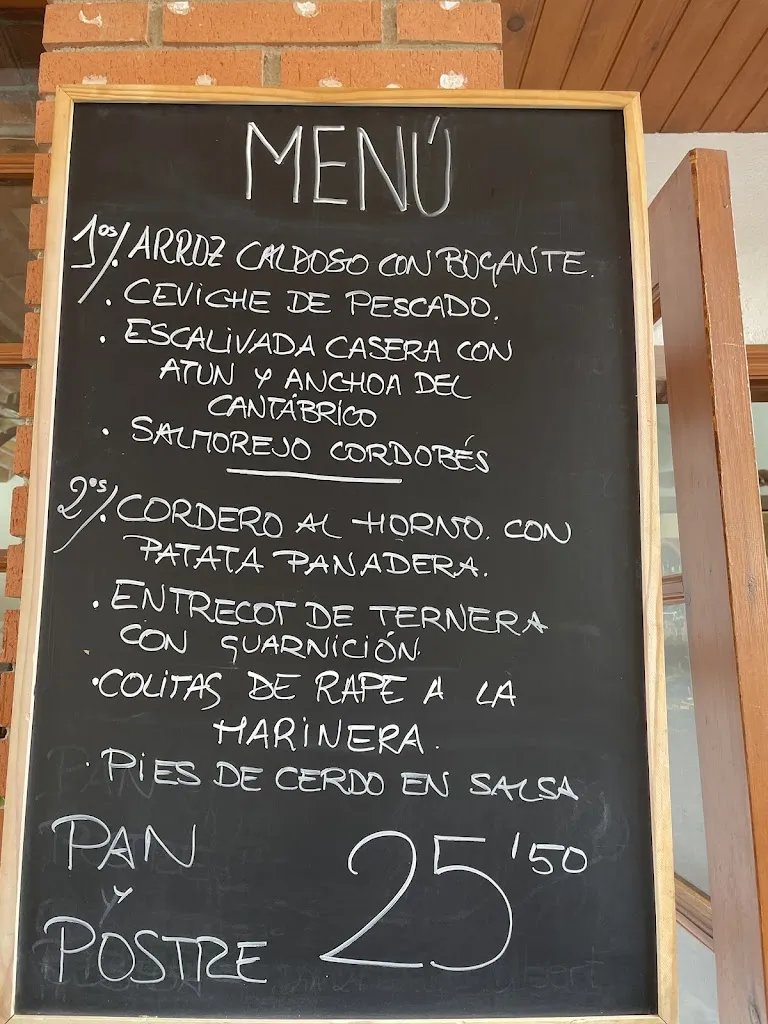 MENÚ
1os/. ARROZ CALDOSO CON BOGANTE.
. CEVICHE DE PESCADO.
. ESCALIVADA CASERA CON
ATUN Y ANCHOA DEL
CANTÁBRICO
. SALMOREJO CORDOBÉS
2os/. CORDERO AL HORNO. CON
PATATA PANADERA.
. ENTRECOT DE TERNERA
CON GUARNICIÓN
. COLITAS DE RAPE A LA
MARINERA.
. PIES DE CERDO EN SALSA
PAN
Y
POSTRE
25'50